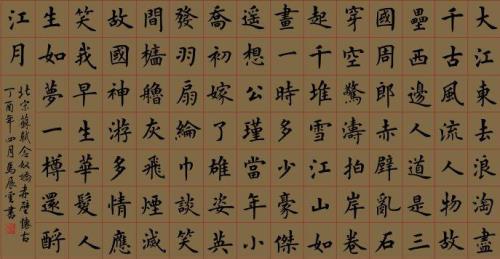 大江東去浪淘盡
千古風流人物故
壘西邊人道是三
國周郎赤壁亂石
穿空驚濤拍岸卷
起千堆雪江山如
畫一時多少豪傑
遙想公瑾當年小
喬初嫁了雄姿英
發羽扇綸巾談笑
間檣艣灰飛煙滅
故國神游多情應
笑我早生華髮人
生如夢一樽還酹
江月
北宋蘇軾念奴嬌赤壁懷古
丁酉年四月馬展雲書